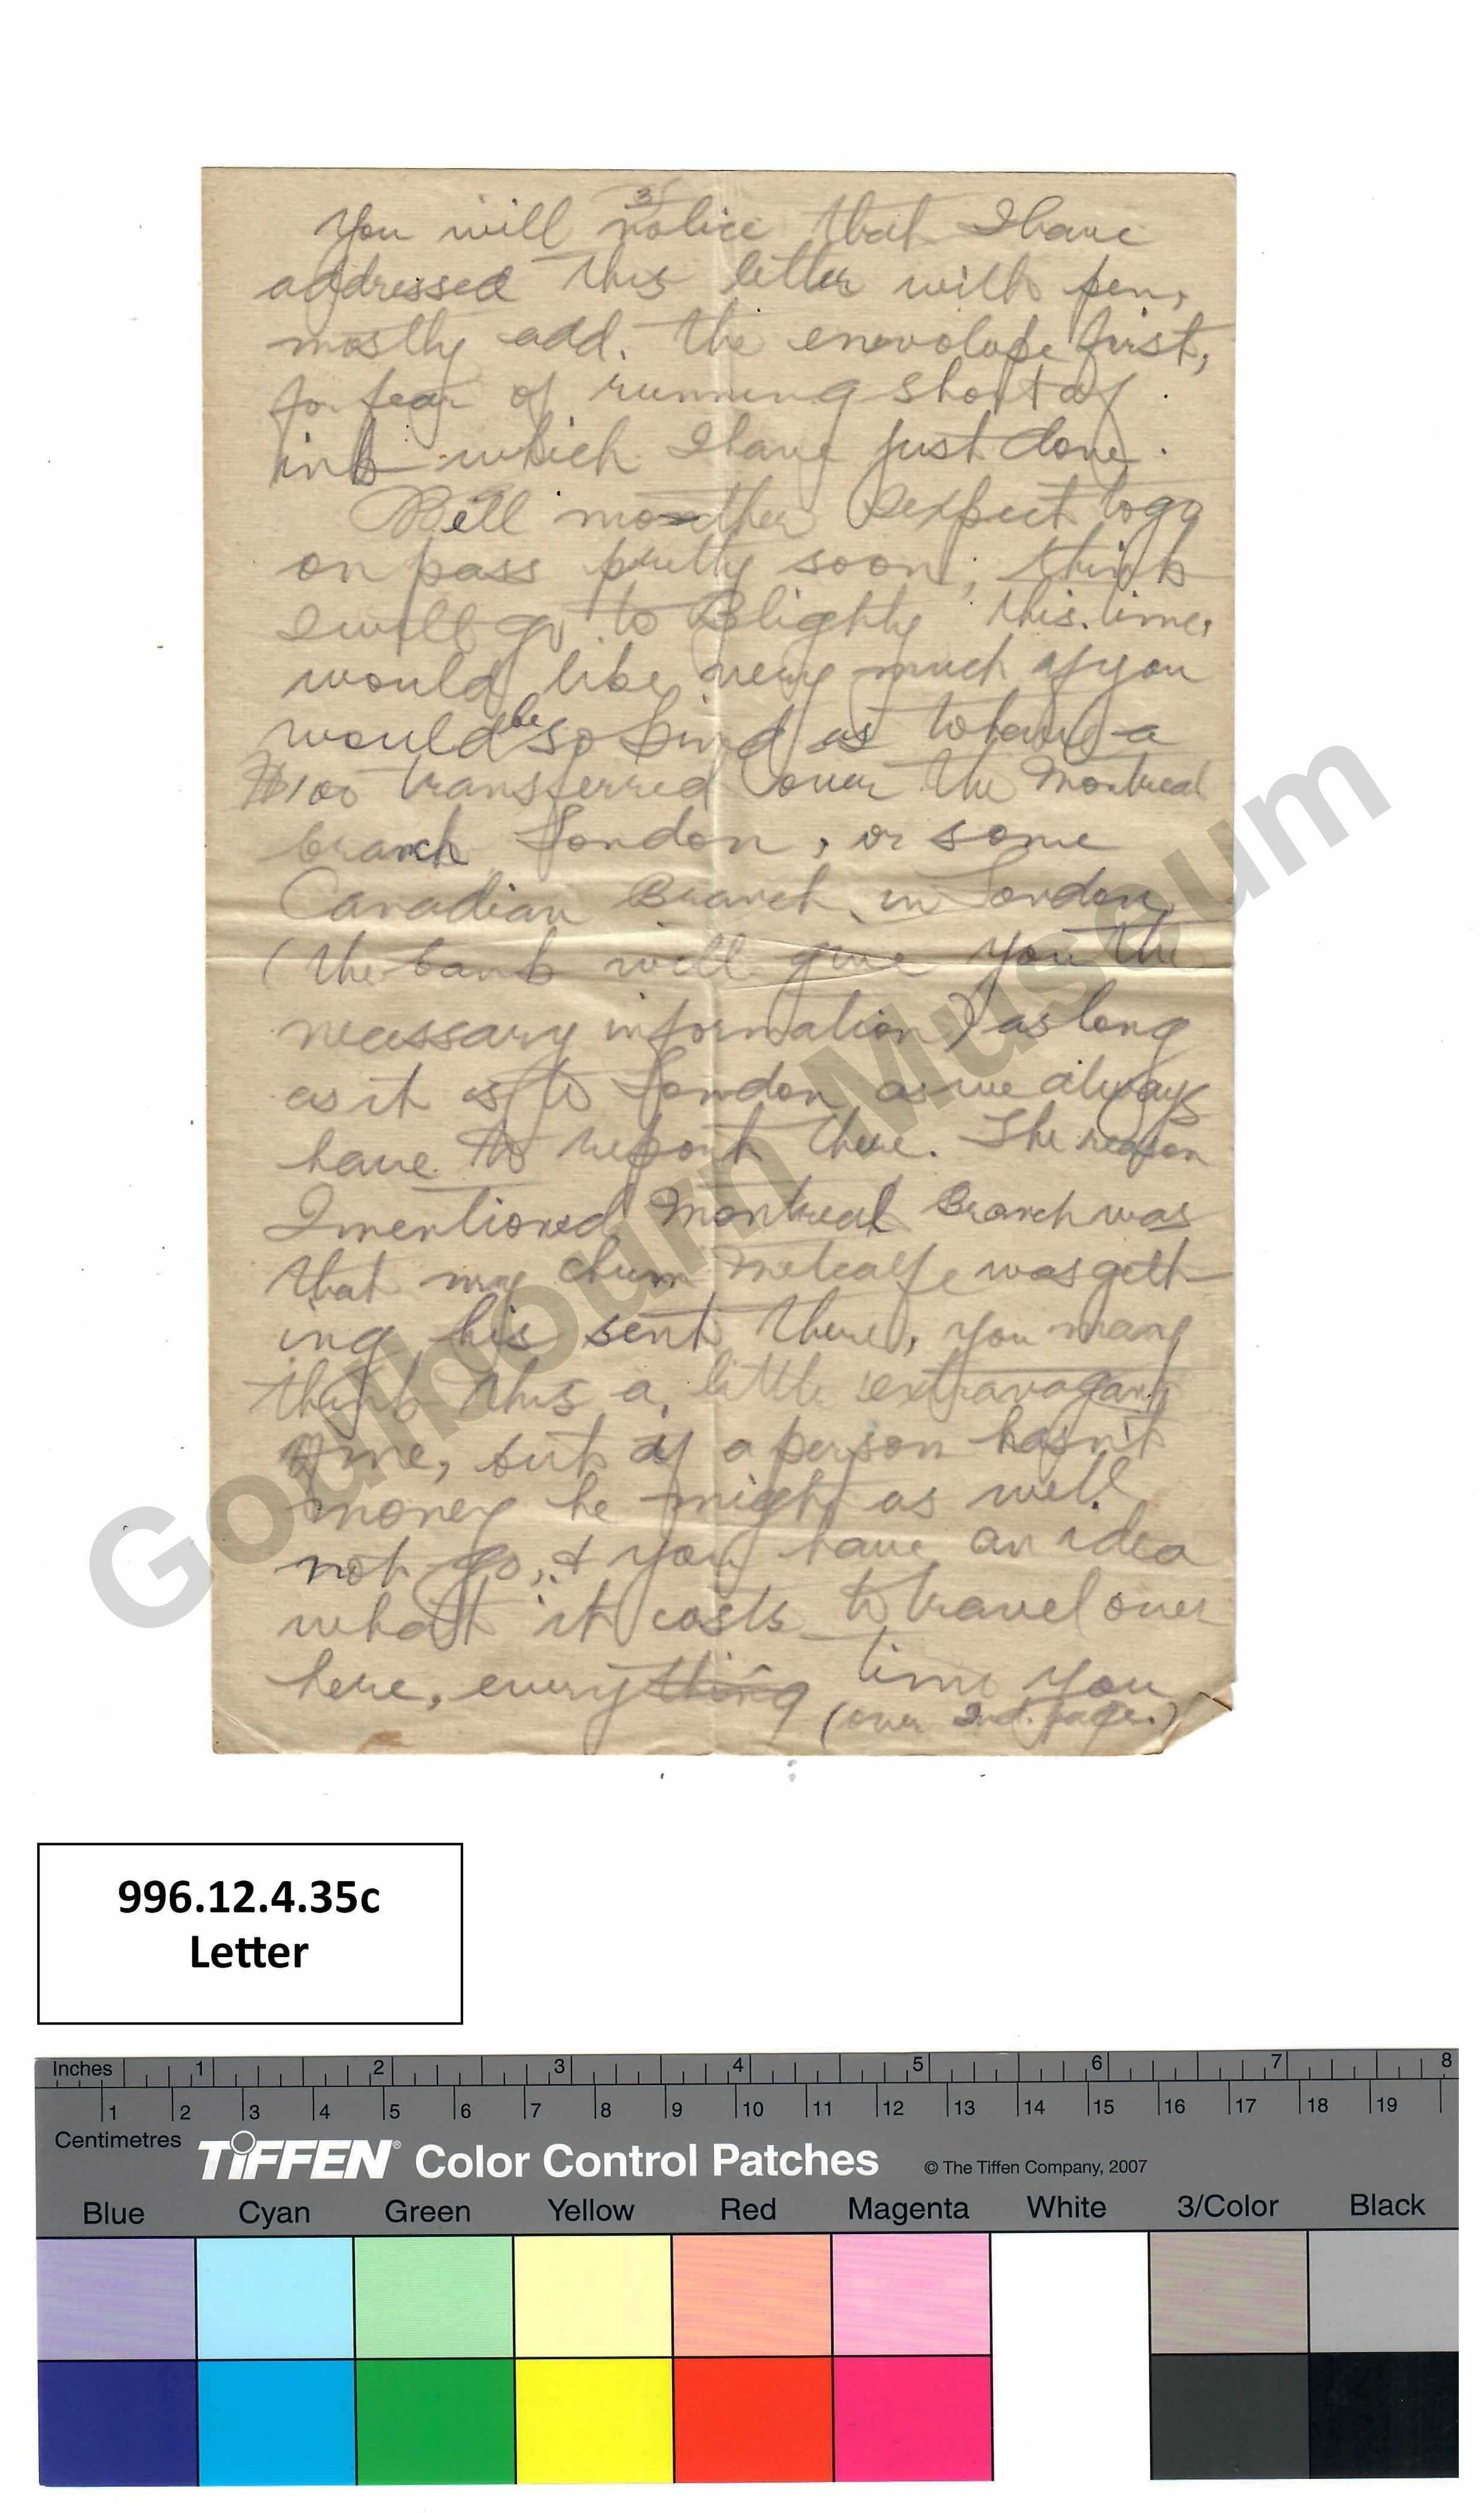 3/
You will notice that I have
addressed this letter with pen,
mostly add. the enevolope first,
for fear of running short of
ink which I have just done.
Well mother I expect to go
on pass pretty soon, think
I will go to Blighty this time,
would like very much if you
would be so kind as to have a
$100 transferred over the Montreal
branch London, or some
Canadian Branch in London
(the bank will give you the
necessary information) as long
as it is to London as we always
have to report there. The reason
I mentioned Montreal Branch was
that my chum Metcalfe was gett-
ing his sent there, you many
think this a little extravagant
of me, but if a person hasn't
money he might as well
not go, & you have an idea
what it costs to travel over
here, everything time you
(over 2nd. page.)
Goulbourn Museum
996.12.4.35c
Letter
Inches 1 2 3 4 5 6 7 8
1 2 3 4 5 6 7 8 9 10 11 12 13 14 15 16 17 18 19
Centimetres
TIFFEN® Color Control Patches © The Tiffen Company, 2007
Blue Cyan Green Yellow Red Magenta White 3/Color Black